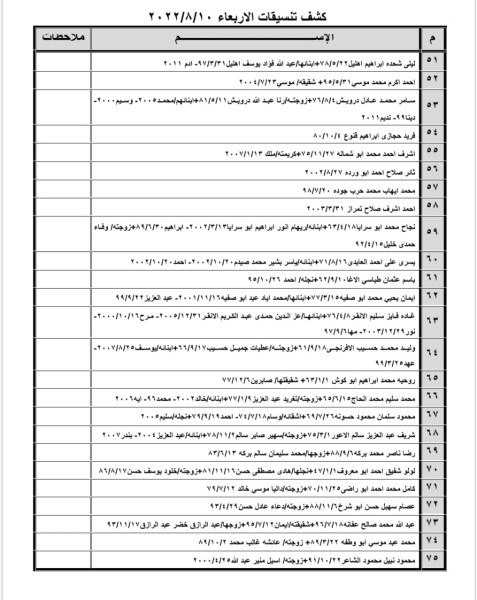 كشف تنسيقات الاربعاء ٢٠٢٢/٨/١٠
م الإســـم ملاحظات
٥١ ليلى شحده ابراهيم اهليل ٧٨/٥/٢٢+ابنائها/عبد الله فؤاد يوسف اهليل ٩٧/٣/٣١- ادم ٢٠١١
٥٢ احمد اكرم محمد موسي ٩٥/٥/٣١+ شقيقه/ موسي ٢٠٠٤/٧/٢٣
٥٣ سامر محمد عادل درويش ٧٦/٨/٤+زوجته/رنا عبد الله درويش ٨١/٥/١١+ابنائهم/محمد٢٠٠٥- وسيم٢٠٠٠-
دينا٩٩- نديم ٢٠١١
٥٤ فريد حجازى ابراهيم قنوع ٨٠/١٠/٤
٥٥ اشرف احمد محمد ابو شماله ٧٥/١١/٢٧+كريمته/ملك ٢٠٠٧/١/١٣
٥٦ ثائر صلاح احمد ابو ورده ٢٠٠٢/٨/٢٧
٥٧ محمد ايهاب محمد حرب جوده ٩٨/٧/٢٠
٥٨ احمد اشرف صلاح تمراز ٢٠٠٣/٣/٣١
٥٩ نجاح محمد ابو سرايا ٦٣/٤/١٨+ابنائه/ريهام انور ابراهيم ابو سرايا ٢٠٠٢/٣/١٣- ابراهيم ٨٩/٦/٣٠+زوجته/ وفاء
حمدى خليل ٩٢/٤/١٥
٦٠ يسرى على احمد العابدى ٧١/٨/١٦+ابنائه/ياسر بشير محمد صيدم ٢٠٠٢/١٠/٢٠- احمد ٢٠٠٢/١٠/٢٠
٦١ باسم عثمان طباسي الاغا ٦٢/٩/١٠+نجله/ احمد ٩٥/١٠/٢٦
٦٢ ايمان يحيى محمد ابو صفيه ٧٧/٣/١٥+ابنائها/محمد اياد عبد ابو صفيه ٢٠٠١/١١/١٦- عبد العزيز ٩٩/٩/٢٢
٦٣ غاده فايز سليم الانقر ٧٦/٤/٨+ابنائها/عز الدين حمدى عبد الكريم الانقر ٢٠٠٥/١٢/٣١- مرح ٢٠٠٠/١٠/١٦-
نور ٢٠٠٣/١٢/٢٩- مها ٩٧/٩/٦
٦٤ وليد محمد حسيب الافرنجى ٦١/٩/١٨+زوجته/عطيات جميل حسيب ٦٦/٩/١٧+ابنائه/يوسف ٢٠٠٧/٨/٢٥-
عهد ٩٩/٣/٢٥
٦٥ روحيه محمد ابراهيم ابو كوش ٦٣/١/١+ شقيقتها/ صابرين ٧٧/١٢/٦
٦٦ محمد سليم محمد الحاج ٦٥/٦/١٥+زوجته/تغريد عبد العزيز ٧٧/١/٩+ابنائه/خالد ٢٠٠٢- محمد ٩٦- ايه ٢٠٠٦
٦٧ محمود سلمان محمود حسونه ٦٩/٧/٢٦+اشقائه/وسام ٧٤/٧/١٨- احمد ٧٩/٩/١٩+نجله/سليم ٢٠٠٥
٦٨ شريف عبد العزيز سالم الاعور ٧٥/٣/١+زوجته/سهير صابر سالم ٧٨/١١/٢+ابنائه/عبد العزيز ٢٠٠٤- بندر ٢٠٠٧
٦٩ رضا ناصر محمد بركه ٨٨/٩/٦+زوجها/محمد سليمان سالم بركه ٨٣/٦/١٣
٧٠ لولو شفيق احمد ابو معروف ٤٧/١/١+نجلها/هادى مصطفى حسن ٨١/١١/١٦+زوجته/خلود يوسف حسن ٨٦/٨/١٧
٧١ كامل محمد احمد ابو راضى ٧٠/١١/٢٥+زوجته/داليا موسي خالد ٧٩/٧/١٢
٧٢ عصام سهيل حسن ابو شرخ ٨٨/١١/٦+زوجته/دعاء عادل حسن ٩٣/٤/٢٩
٧٣ عبد الله محمد صالح عفانه ٩٦/٧/١٨+شقيقته/ايمان ٩٥/٧/١٢+زوجها/عبد الرازق خضر عبد الرازق ٩٣/١١/١٧
٧٤ محمد عبد موسي ابو وظفه ٨٩/٣/٢٢+ زوجته/ عائشه غالب محمد ٨٩/١٠/٢
٧٥ محمود نبيل محمود الشاعر ٩١/١٠/٢٢+زوجته/ اسيل منير عبد الله ٢٠٠٠/٤/٢٥